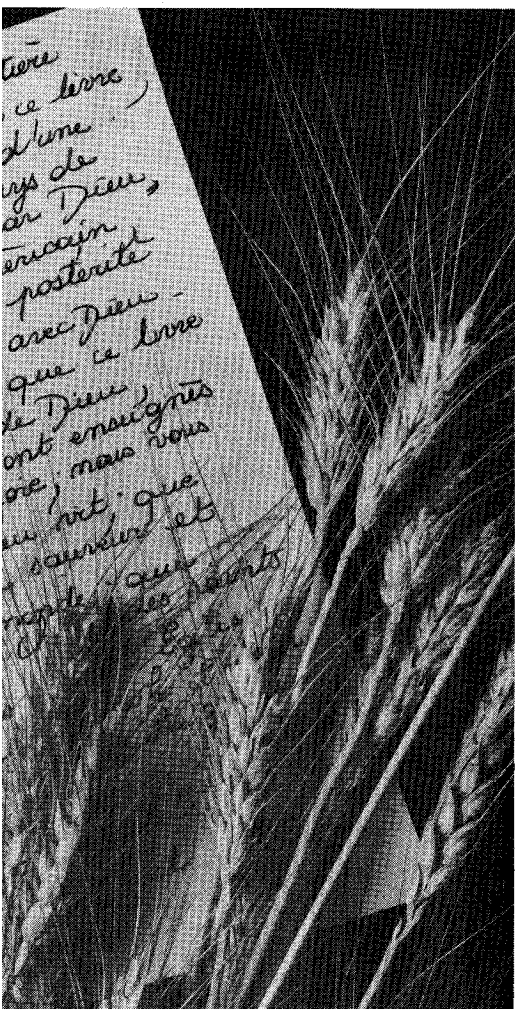 tière
ce livre
d'une
ays de
ar Dieu,
éricain
postérité
avec Dieu.
que ce livre
de Dieu,
ont enseignés
oire; nous vous
que
sauveur et
monde que
les saints